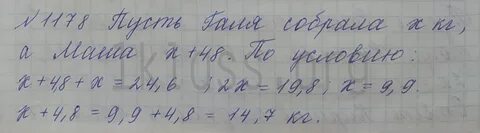 №1178 Пусть Галя собрала x кг,
а Маша x+48. По условию:
x+48+x=24,6 ; 2x=19,8, x=9,9.
x+4,8=9,9+4,8=14,7 кг.